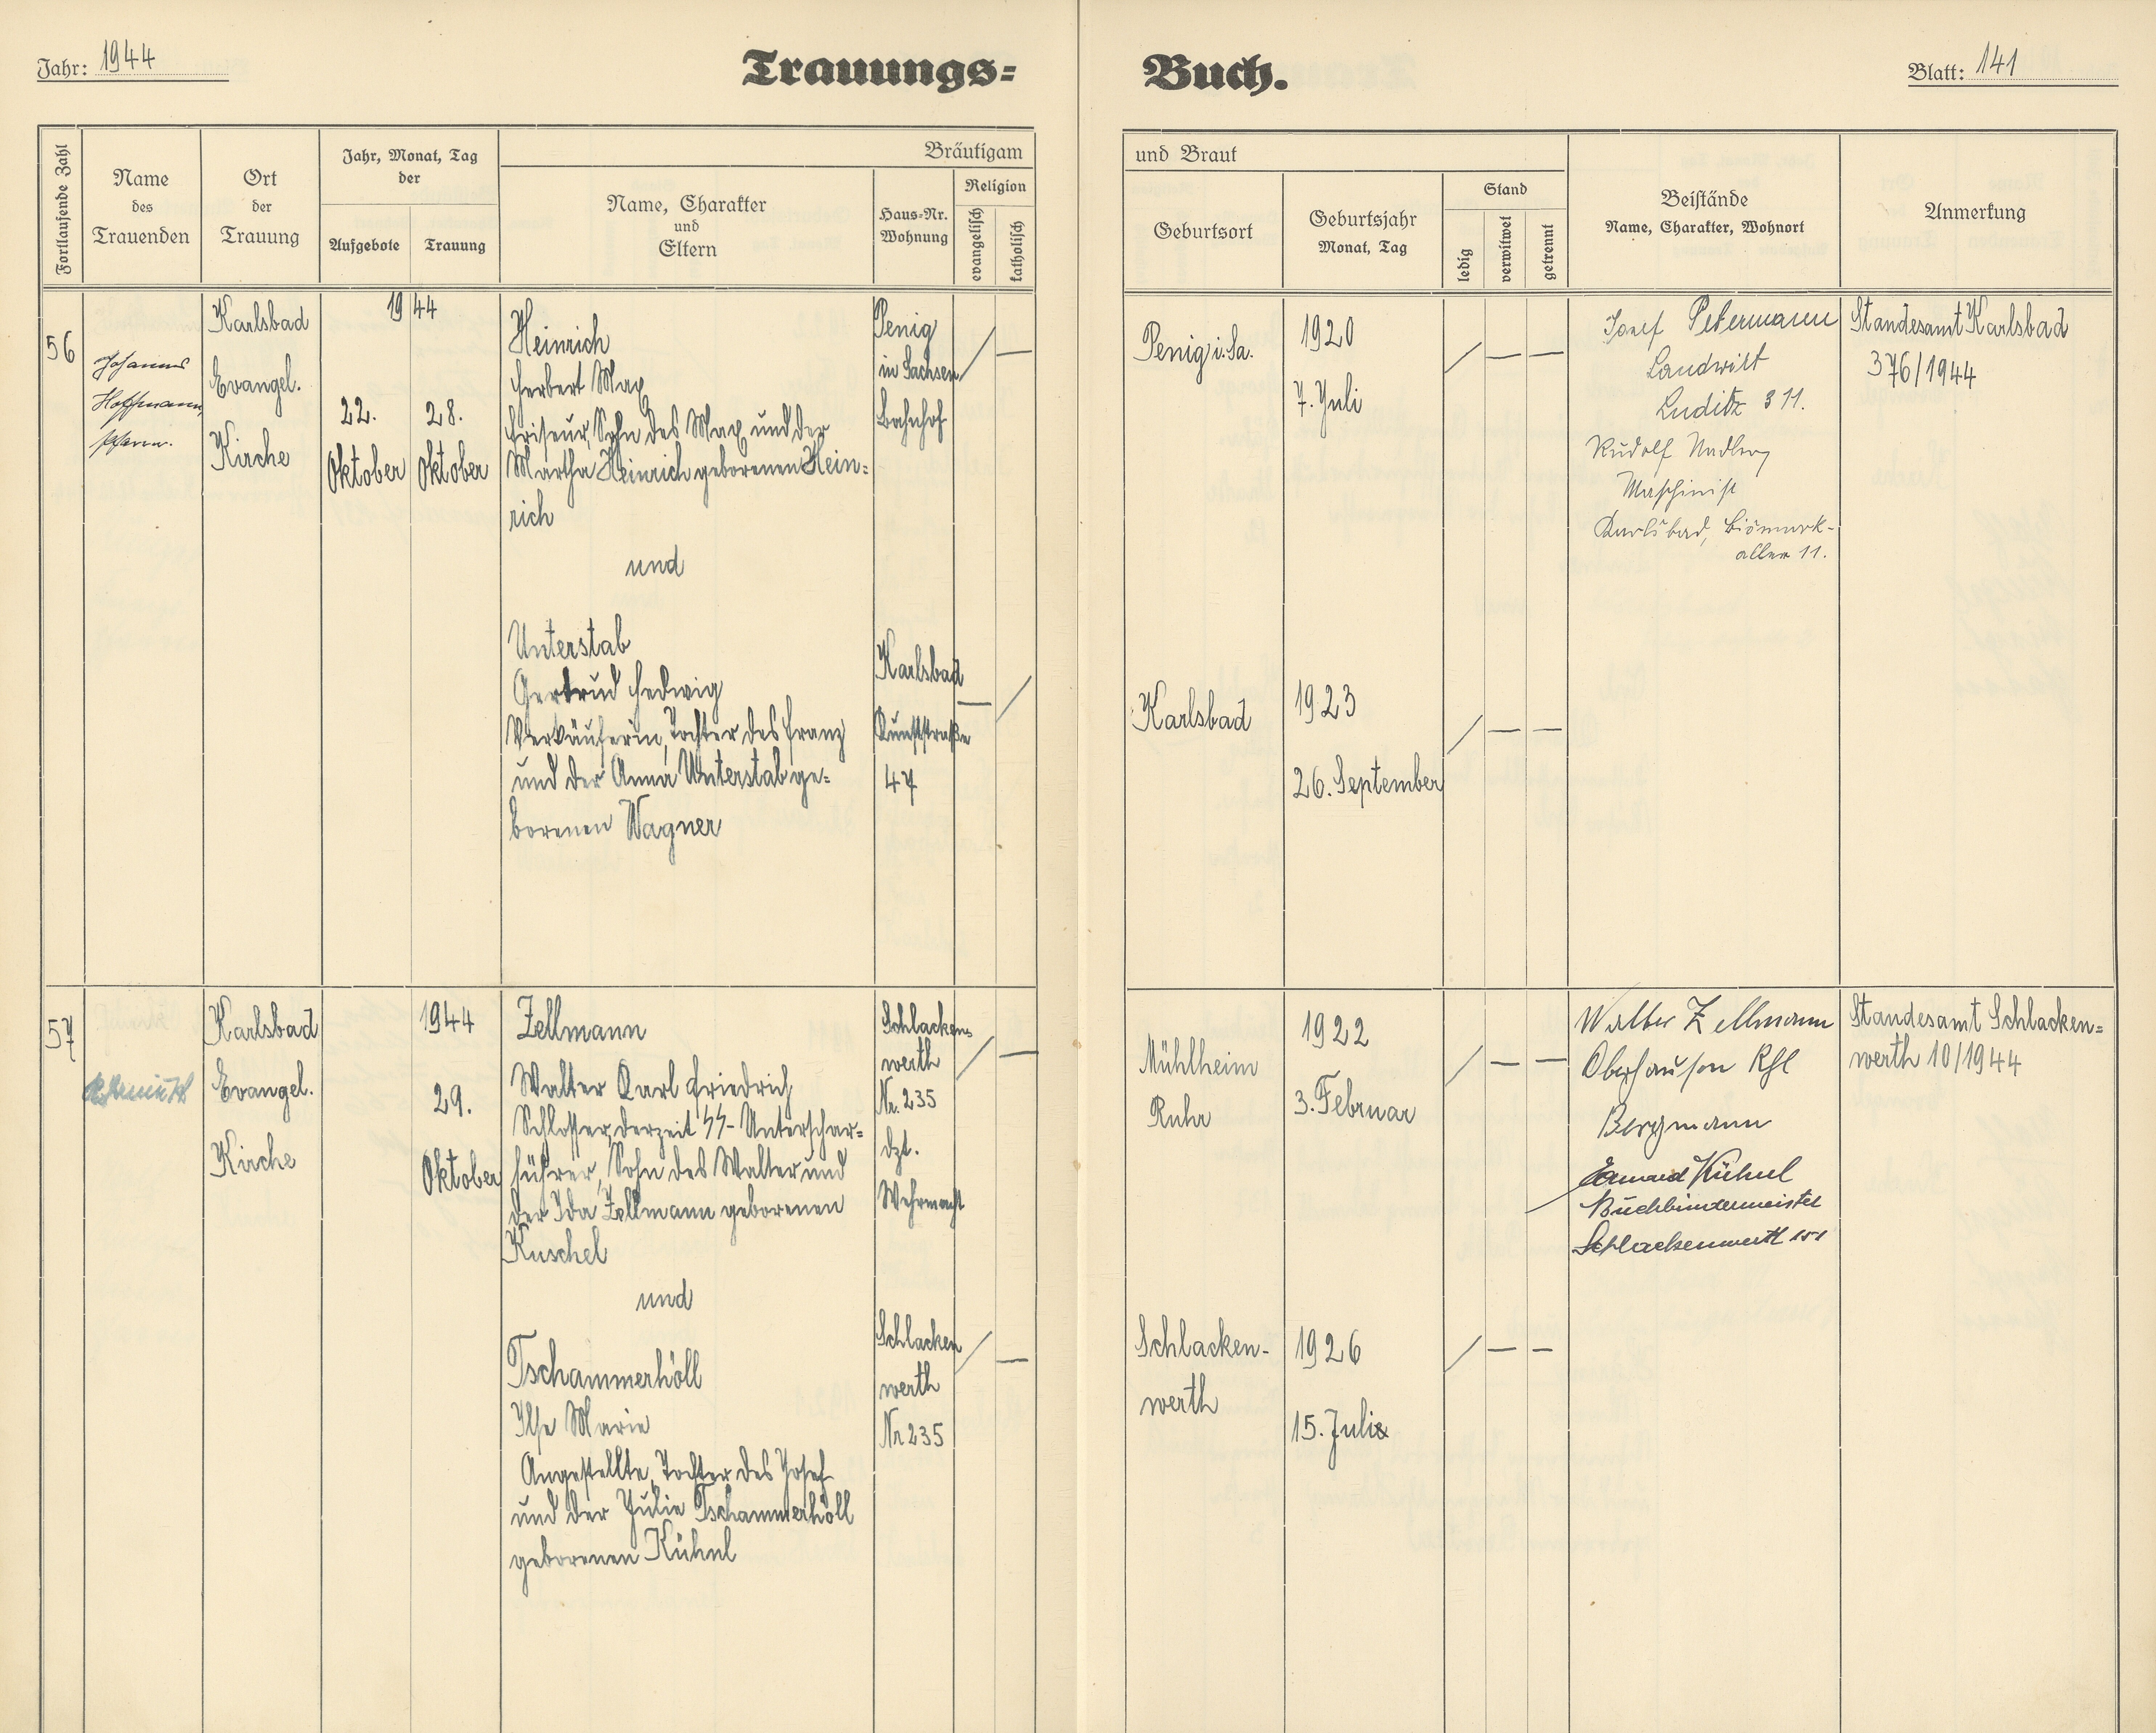 Jahr: 1944
Trauungs=
Buch.
Blatt: 141
Fortlaufende Zahl
Name
des
Trauenden
Ort
der
Trauung
Jahr, Monat, Tag
der
Aufgebote
Trauung
Bräutigam
Name, Charakter
und
Eltern
Haus=Nr.
Wohnung
Religion
evangelisch
katholisch
und Braut
Geburtsort
Geburtsjahr
Monat, Tag
Stand
ledig
verwitwet
getrennt
Beistände
Name, Charakter, Wohnort
Anmerkung
56
Johannes
Hoffmann,
Pfarrer.
Karlsbad
Evangel.
Kirche
1944
22.
Oktober
28.
Oktober
Heinrich
Herbert Max
Friseur, Sohn des Max und der
Martha Heinrich geborenen Hein=
rich
und
Unterstab
Gertrud Hedwig
Verkäuferin, Tochter des Franz
und der Anna Unterstab ge=
borenen Wagner
Penig
in Sachsen
Bahnhof
/ —
Karlsbad
Kunststraße
47
— /
Penig i. Sa.
1920
7. Juli
/ — —
Karlsbad
1923
26. September
/ — —
Josef Petermann
Landwirt
Luditz 311.
Rudolf
Maschinist
Karlsbad, Bismark-
allee 11.
Standesamt Karlsbad
376/1944
57
Karlsbad
Evangel.
Kirche
1944
29.
Oktober
Zellmann
Walter Karl Friedrich
Schlosser, derzeit SS-Unterschar=
führer, Sohn des Walter und
der Ida Zellmann geborenen
Kuschel
und
Tschammerhöll
Ilse Marie
Angestellte, Tochter des Josef
und der Julie Tschammerhöll
geborenen Kühnl
Schlacken=
werth
Nr. 235
dzt.
Wehrmacht
/ —
Schlacken
werth
Nr. 235
/ —
Mühlheim
Ruhr
1922
3. Februar
/ — —
Schlacken-
werth
1926
15. Juli
/ — —
Walter Zellmann
Oberhausen Rhl
Bergmann
Kühnl
Buchbindermeister
Schlackenwerth 151
Standesamt Schlacken=
werth 10/1944